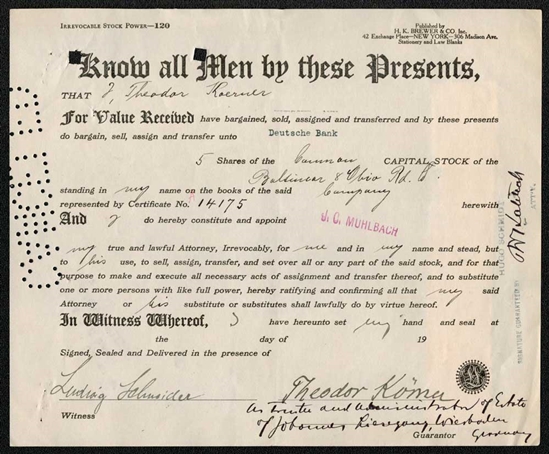 IRREVOCABLE STOCK POWER—120
Published by
H. K. BREWER & CO. Inc.
42 Exchange Place—NEW YORK—306 Madison Ave.
Stationery and Law Blanks
Know all Men by these Presents,
THAT I, Theodor Koerner
For Value Received have bargained, sold, assigned and transferred and by these presents
do bargain, sell, assign and transfer unto Deutsche Bank
5 Shares of the Common CAPITAL STOCK of the
Baltimore & Ohio Rd.
standing in my name on the books of the said Company
represented by Certificate No. 14175 herewith
And I do hereby constitute and appoint
J. C. MUHLBACH
my true and lawful Attorney, Irrevocably, for me and in my name and stead, but
to his use, to sell, assign, transfer, and set over all or any part of the said stock, and for that
purpose to make and execute all necessary acts of assignment and transfer thereof, and to substitute
one or more persons with like full power, hereby ratifying and confirming all that my said
Attorney or his substitute or substitutes shall lawfully do by virtue hereof.
In Witness Whereof, I have hereunto set my hand and seal at
the day of 19
Signed, Sealed and Delivered in the presence of
Ludwig Schneider Theodor Körner
as trustee and administrator of Estate
of Johannes Wiesbaden
Germany
Witness Guarantor
SIGNATURE GUARANTEED BY
ATTY.